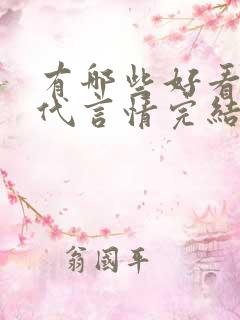 有哪些好看
代言情完结
翁国平